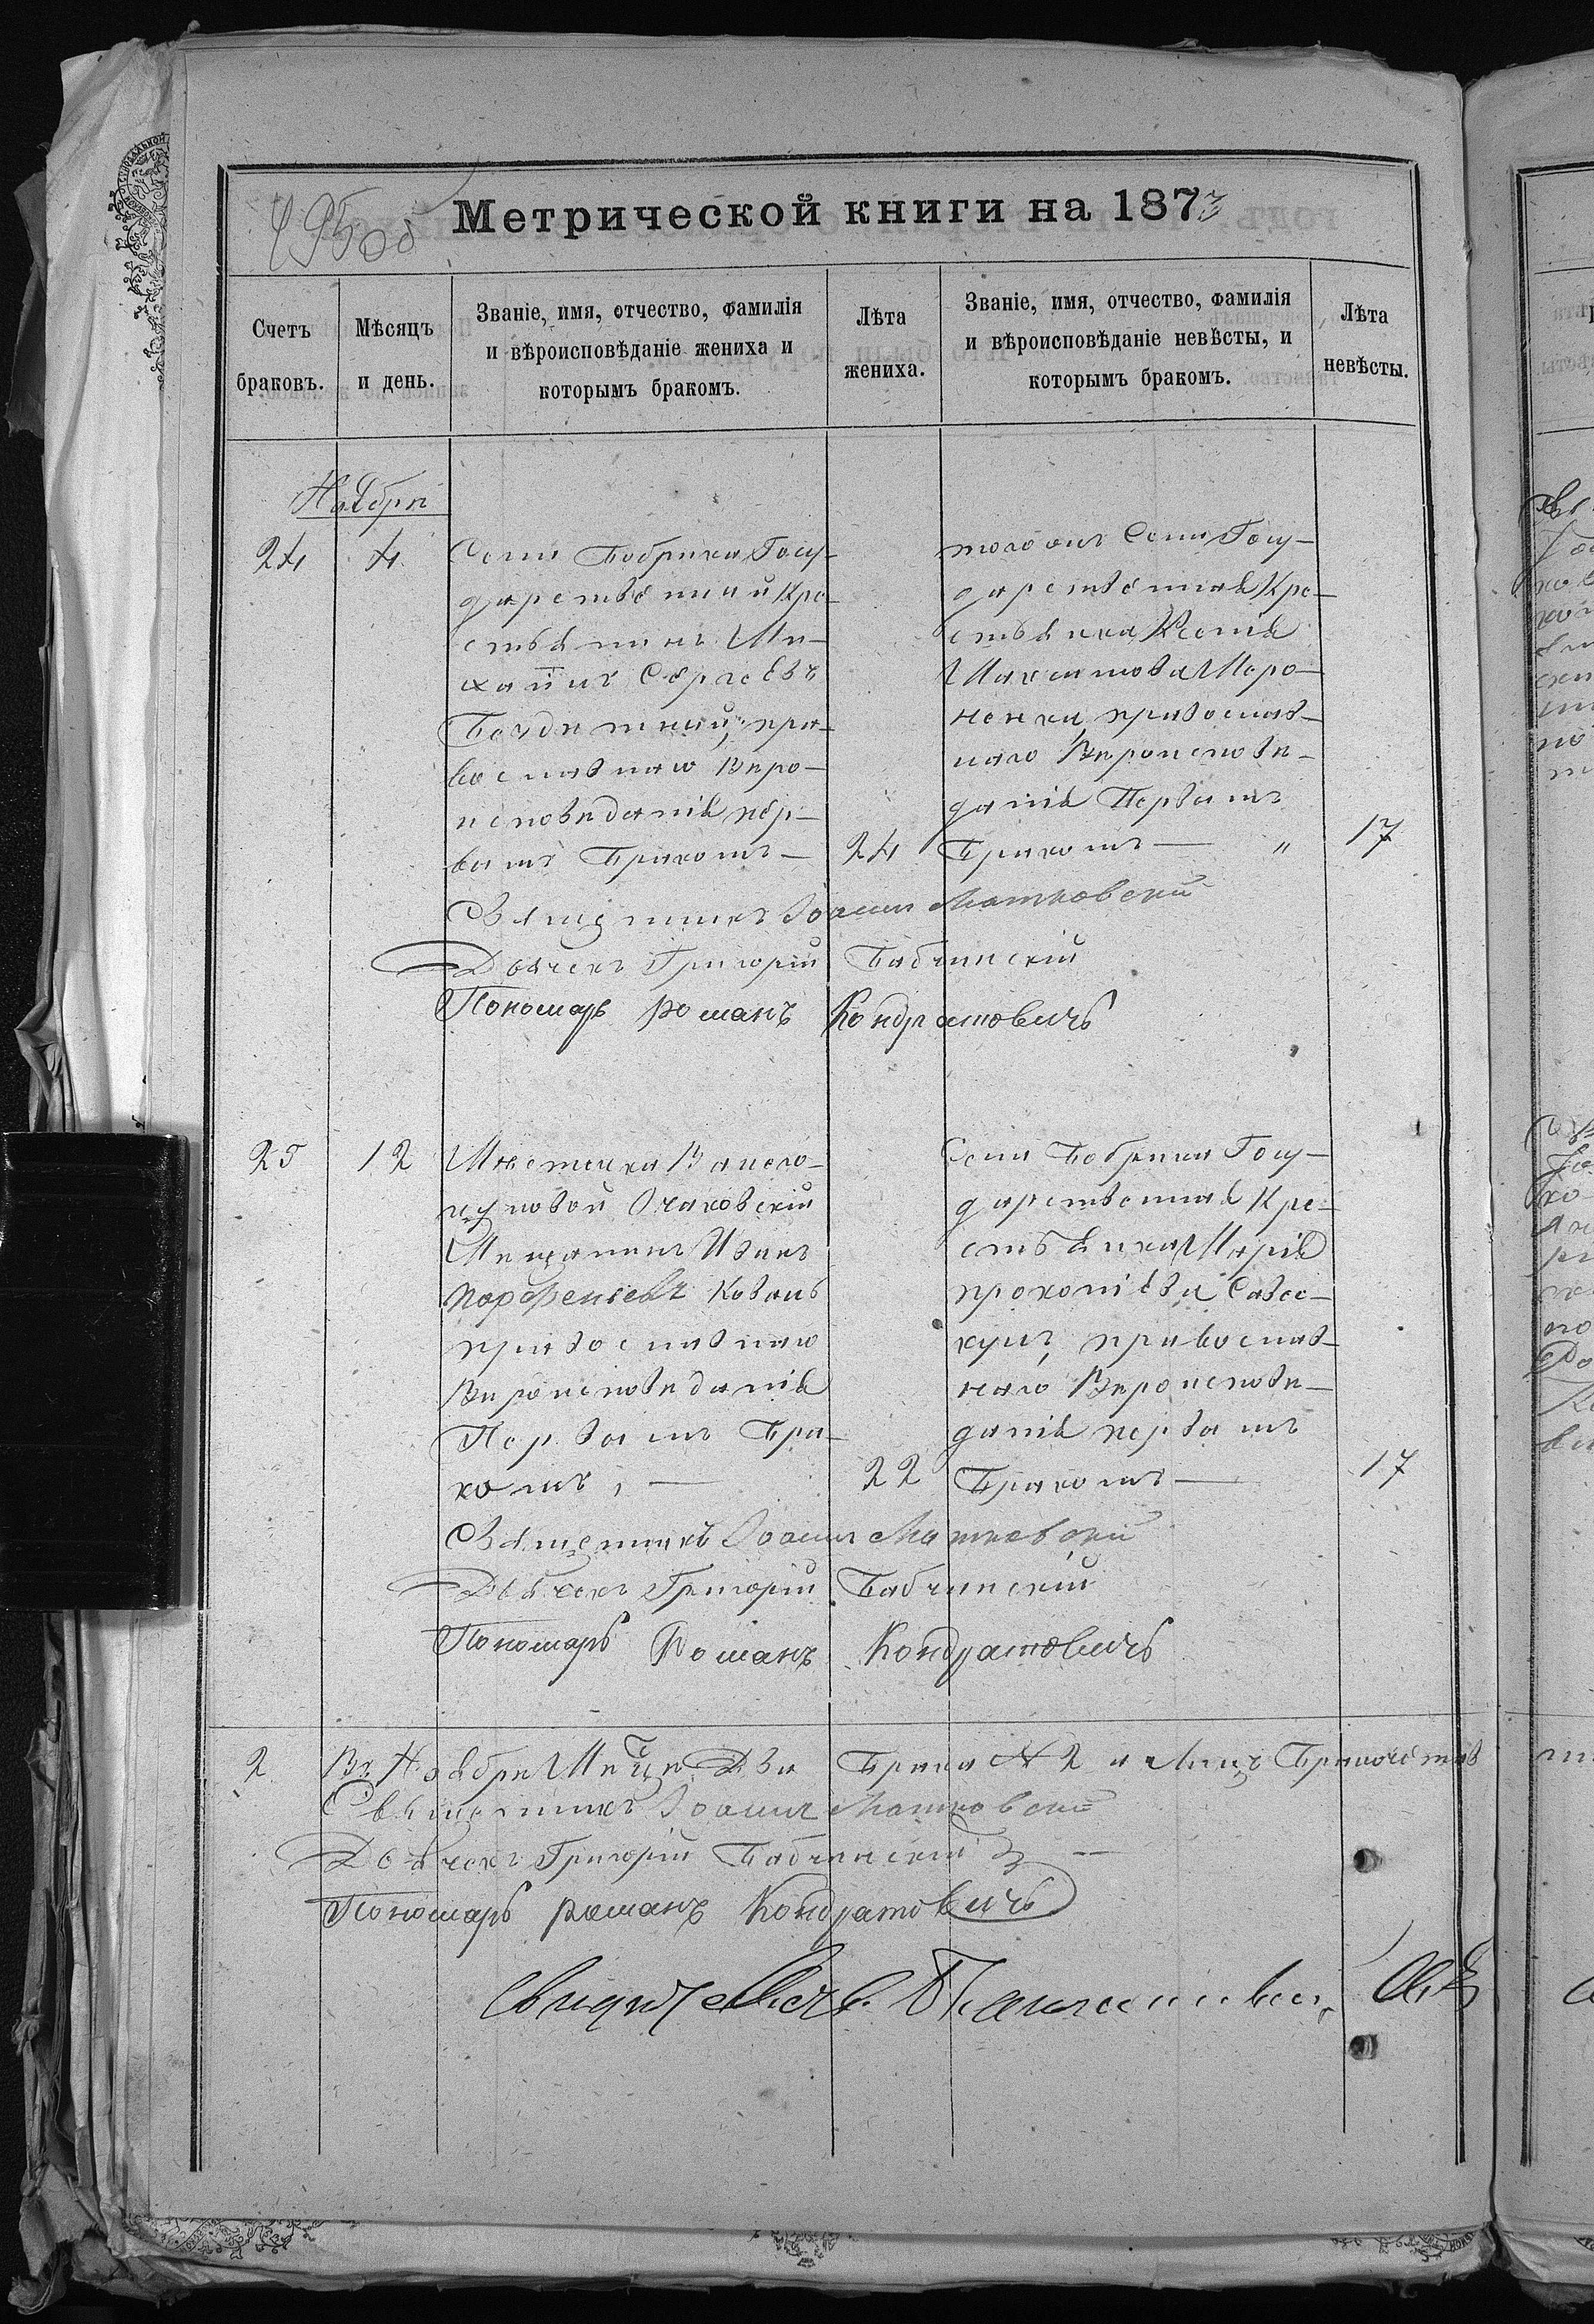 495об
Метрической книги на 1873
Счетъ браковъ.
Мѣсяцъ и день.
Званіе, имя, отчество, фамилія и вѣроисповѣданіе жениха и которымъ бракомъ.
Лѣта жениха.
Званіе, имя, отчество, фамилія и вѣроисповѣданіе невѣсты, и которымъ бракомъ.
Лѣта невѣсты.
Ноября
24
4
Села Бобрика Госу-
дарственный Кре-
стьянинъ Ми-
хаилъ Сергѣевъ
пра-
вославнаго Виро-
исповиданія пер-
вымъ Бракомъ —
24
тогожъ Села Госу-
дарственная Кре-
стьянка Ксенія
Максимова Моро-
, православ-
наго Вироиспови-
данія Первымъ
Бракомъ — "
17
Священникъ Іоаннъ Матковскій
Дьячекъ Григорій Бабчинскій
Пономарь романъ Кондратовичъ
25
12
Мѣстечка
Очаковскій
Мищанинъ Иванъ
Парфеніевъ Коваль
православнаго
Вироисповиданія
Первымъ Бра-
комъ, —
22
Села Бобрика Госу-
дарственная Кре-
стьянка Марія
прокопіева
православ-
наго Вироиспови-
данія первымъ
Бракомъ —
17
Священникъ Іоаннъ Матковскій
Дьячекъ Григорій Бабчинскій
Пономарь Романъ Кондратовичъ
2
Въ Ноябри Два Брака № 2 а лицъ
Священникъ Іоаннъ Матковскій
Дьячекъ Григорій Бабчинскій
Пономарь романъ Кондратовичъ